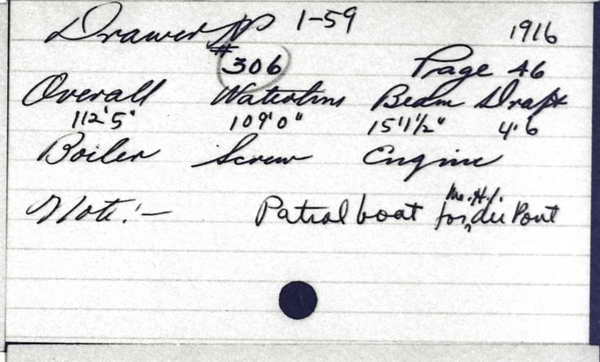 Drawer N 1-59 1916
#306 Page 46
Overall Waterline Beam Draft
112'5" 109'0" 15'1½" 4'6
Boiler Screw Engine
Note:- Patrol boat for Mr. H. du Pont